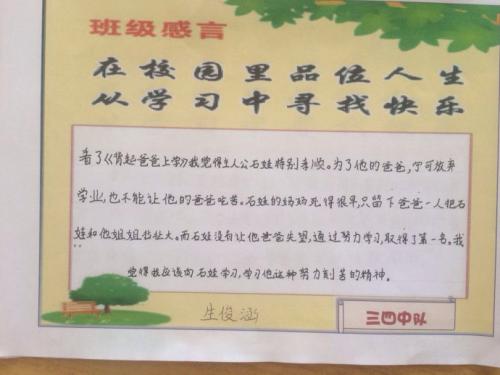 班级感言
在校园里品位人生
从学习中寻找快乐
看了《背起爸爸上学》我觉得主人公石娃特别孝顺。为了他的爸爸,宁可放弃
学业,也不能让他的爸爸吃苦。石娃的妈妈死得很早,只留下爸爸一人把石
娃和他姐姐拉扯大。而石娃没有让他爸爸失望,通过努力学习,取得了第一名。我
觉得我应该向石娃学习,学习他这种努力刻苦的精神。
生俊涵
三四中队